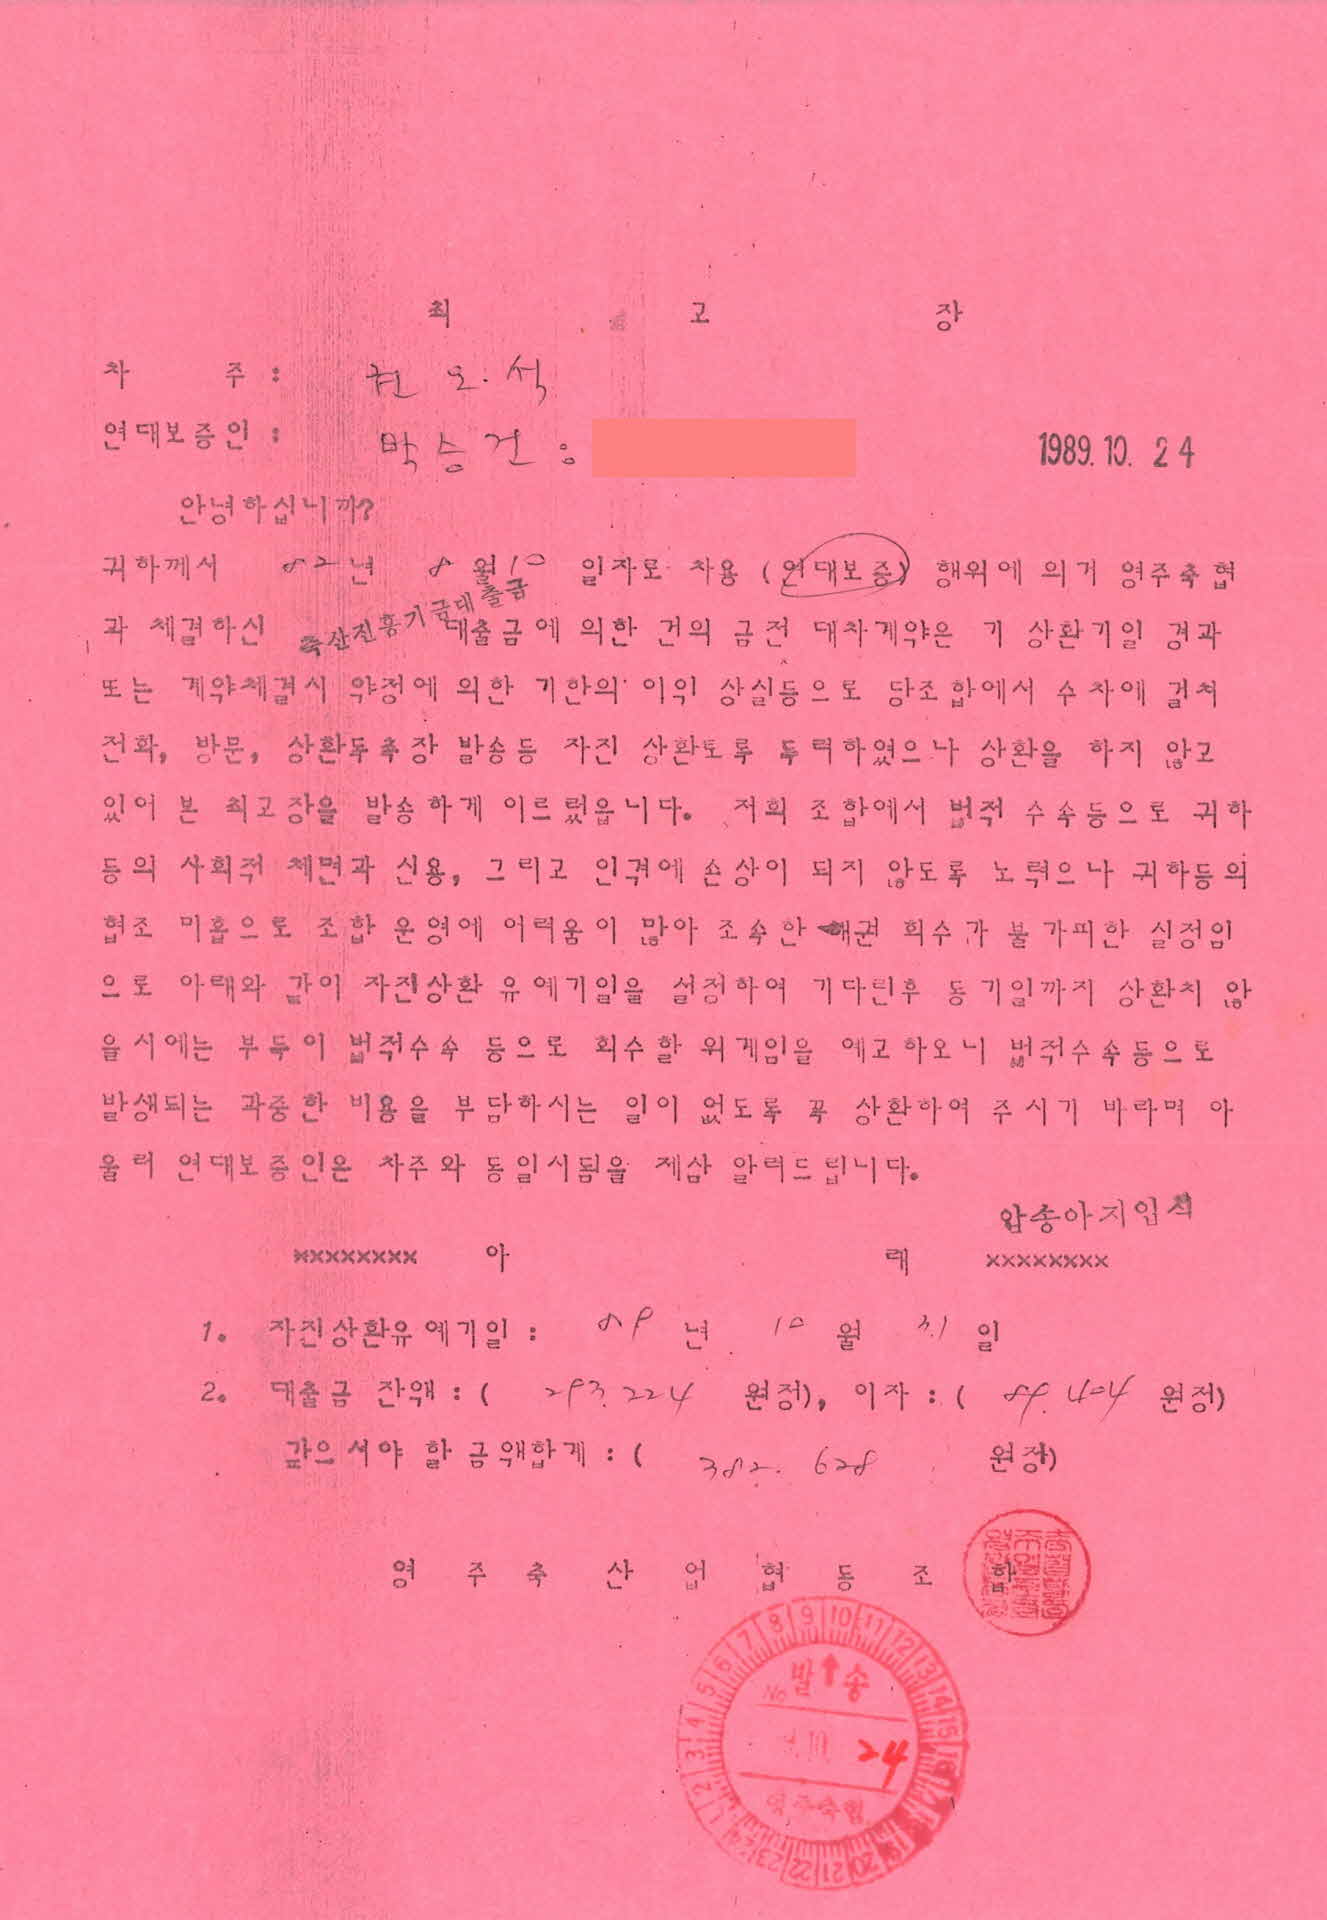 최 고 장
차 주 : 권오석
연대보증인 : 박승건 :
1989. 10. 24
안녕하십니까?
귀하께서 82년 8월 10일자로 차용 (연대보증) 행위에 의거 영주축협
과 체결하신 축산진흥기금대출금 대출금에 의한 건의 금전 대차계약은 기 상환기일 경과
또는 계약체결시 약정에 의한 기한의 이익 상실등으로 당조합에서 수차에 걸쳐
전화, 방문, 상환독촉장 발송등 자진 상환토록 독력하였으나 상환을 하지 않고
있어 본 최고장을 발송하게 이르렀읍니다. 저희 조합에서 법적 수속등으로 귀하
등의 사회적 체면과 신용, 그리고 인격에 손상이 되지 않도록 노력으나 귀하등의
협조 미흡으로 조합 운영에 어려움이 많아 조속한 채권 회수가 불가피한 실정임
으로 아래와 같이 자진상환 유예기일을 설정하여 기다린후 동기일까지 상환치 않
을시에는 부득이 법적수속 등으로 회수할 위게임을 예고하오니 법적수속등으로
발생되는 과중한 비용을 부담하시는 일이 없도록 꼭 상환하여 주시기 바라며 아
울러 연대보증인은 차주와 동일시됨을 제삼 알려드립니다.
암송아지입식
xxxxxxxx 아 래 xxxxxxxx
1. 자진상환유예기일 : 89년 10월 31일
2. 대출금 잔액 : ( 293.224 원정), 이자 : ( 89.404 원정)
갚으셔야 할 금액합계 : ( 382.628 원정)
영 주 축 산 업 협 동 조 합
1 2 3 4 5 6 7 8 9 10 11 12 13 14 15 16 19 20 21 22 23 24
발송
No
10. 24
영주축협